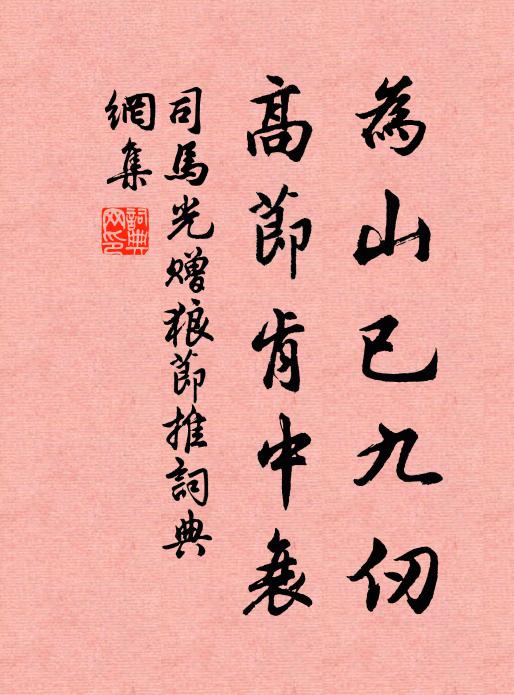 為山已九仞
高節肯中衰
司馬光贈狼節推詞典
網集
詞典網印